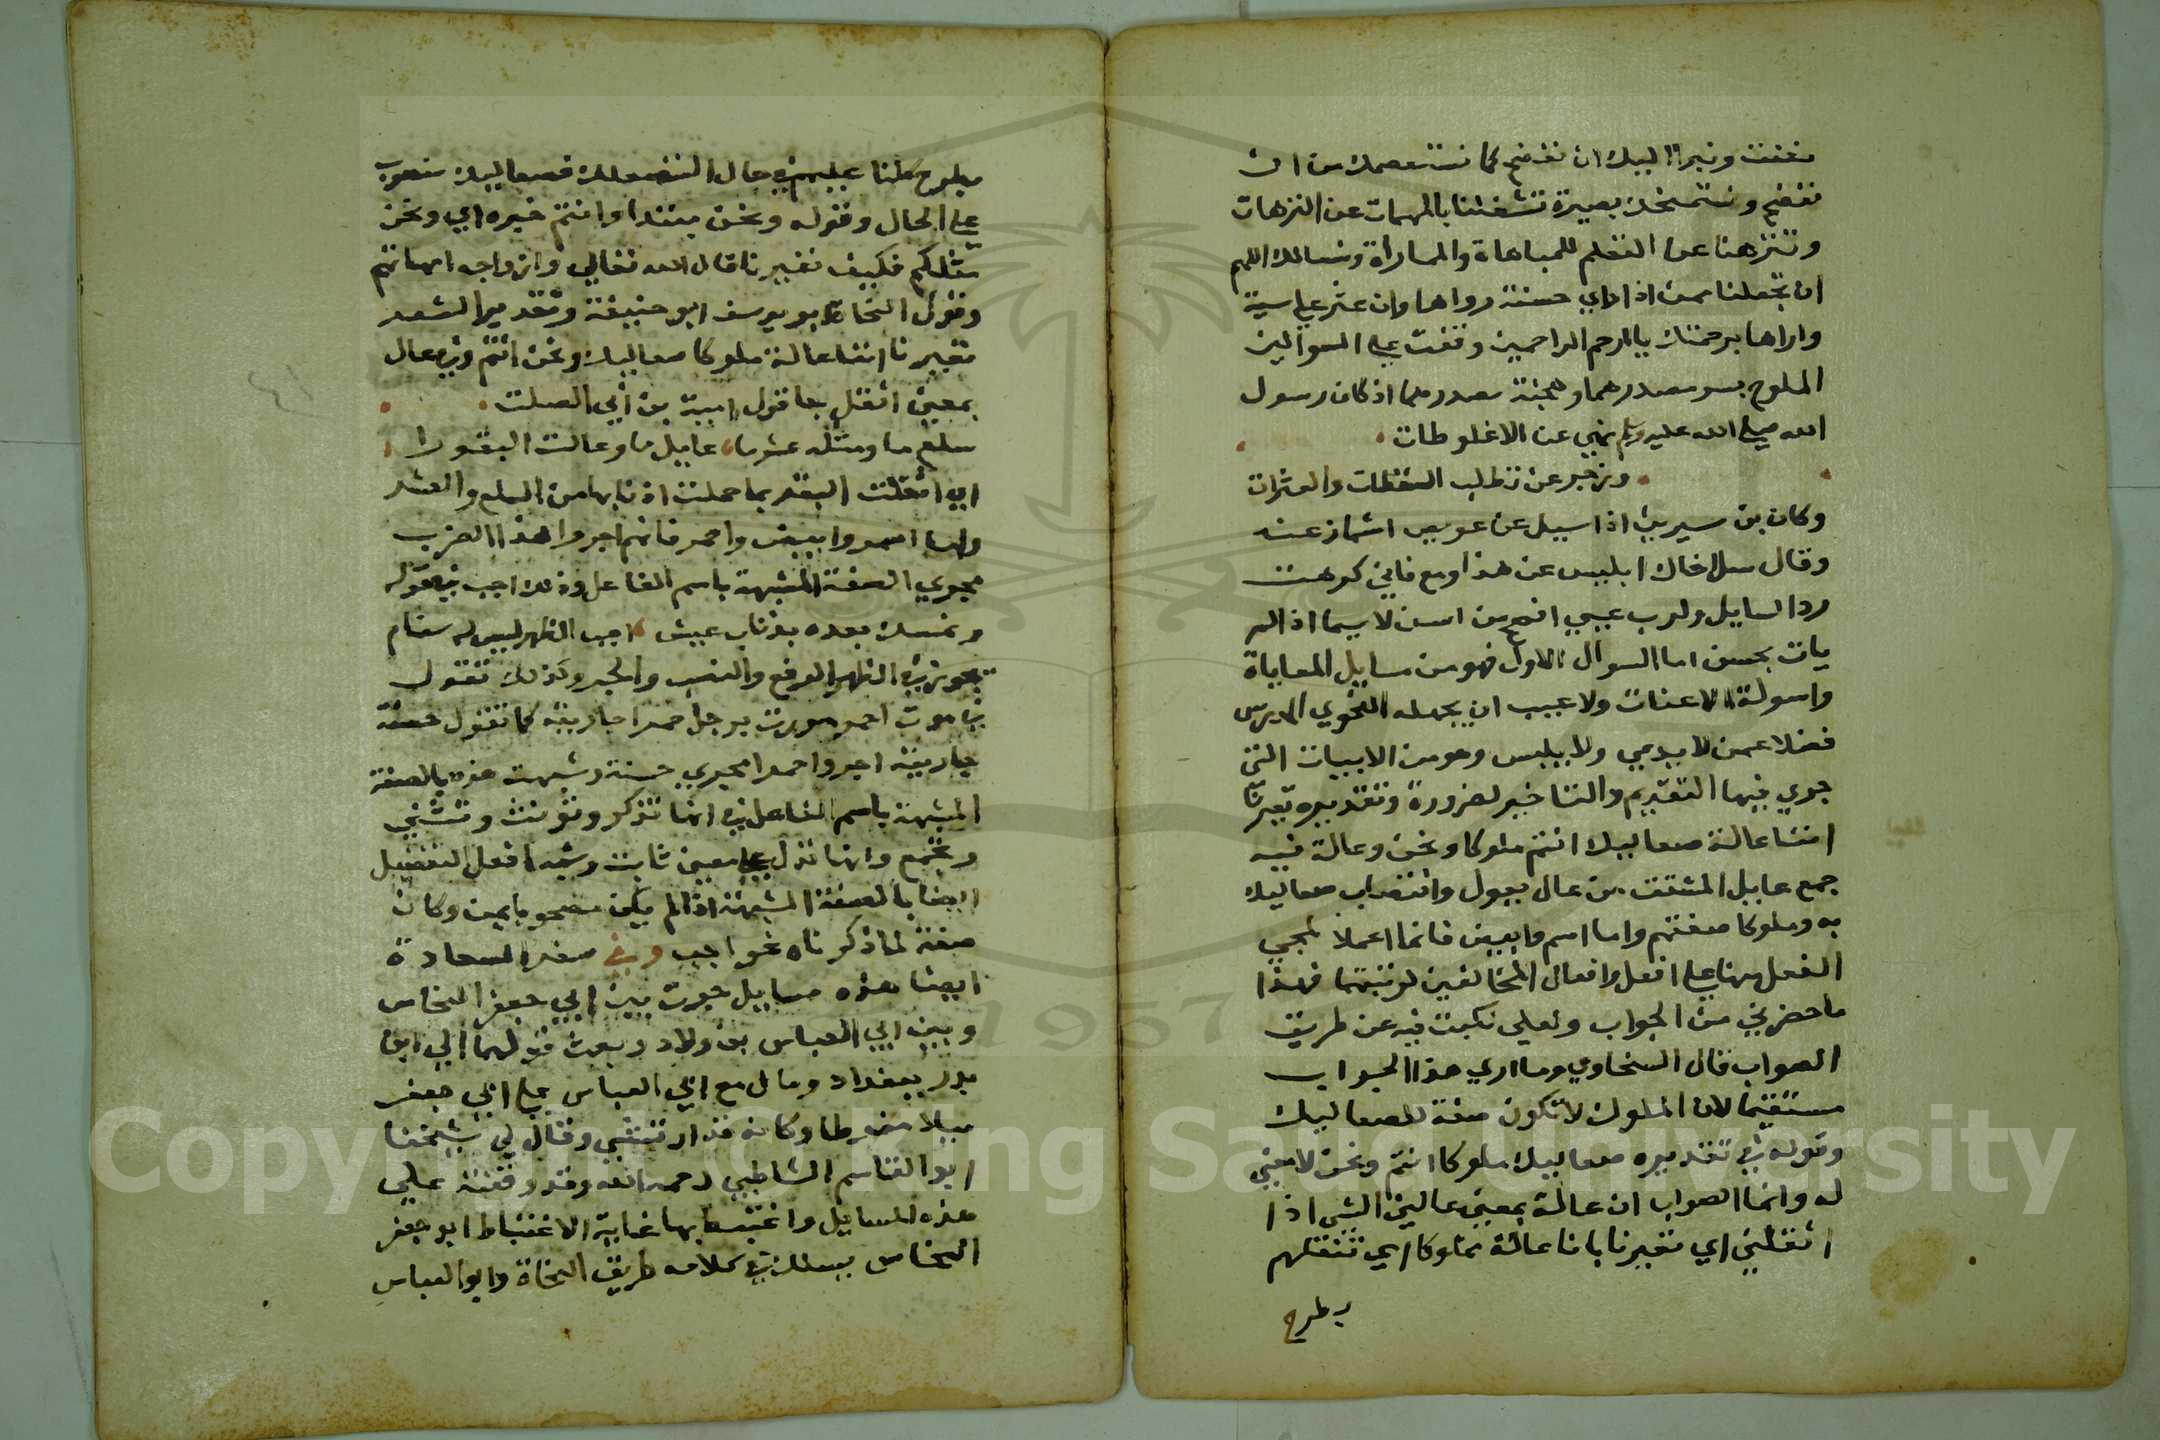 ونبرا اليك ان نفضح كما نستعصمك من ان
نفضح ونستمنحك بصيرة تشغلنا بالمهمات عن الترهات
وتنزهنا عن التعلم للمباهاة والمماراة ونسالك اللهم
ان تجعلنا ممن اذا راي حسنة رواها وان عثر علي سية
واراها برحمتك يا ارحم الراحمين وقفت علي السوالين
الملوح بسو مصدرهما وهجنة مصدرهما اذ كان رسول
الله صلي الله عليه وسلم نهي عن الاغلوطات
وزجر عن تطلب السقطات والعثرات
وكان بن سيرين اذا سيل عن عويص اشماز عنه
وقال سل اخاك ابليس عن هذا ومع فاني كرهت
رد السايل ولرب عيي افصح من لسن لا سيما اذا لم
يات بحسن اما السوال الاول فهو من مسايل المعاياة
واسولة الاعنات ولا عيب ان يجهله النحوي المدرس
فضلا عمن لا يدعي ولا يلبس وهو من الابيات التي
جري فيها التقديم والتاخير لضرورة وتقديره تعيرنا
اننا عالة صعاليك انتم ملوكا ونحن وعالة فيه
جمع عايل المشتق من عال يعول وانتصاب صعاليك
به وملوكا صفتهم واما اسم وابيض فانما اعملا لمجي
الفعل منها علي افعل وافعال المخالفين لرتبتهما فهذا
ما حضرني من الجواب ولعلي نكبت فيه عن طريق
الصواب قال السخاوي وما اري هذا الجواب
مستقيما لان الملوك لا تكون صفة للصعاليك
وقوله في تقديره صعاليك ملوكا انتم ونحن لا معني
له وانما الصواب ان عالة بمعني عالين الشي اذا
اثقلني اي تعيرنا باننا عالة ملوكا اي تثقلهم
بطرح
بطرح كلنا عليهم في حال التصعلك فصعاليك منصوب
علي الحال وقوله ونحن مبتدا وانتم خبره اي ونحن
مثلكم فكيف تعيرنا قال الله تعالي وازواجه امهاتهم
وقول النحاة ابو يوسف ابو حنيفة وتقدير الشعر
تعيرنا اننا عالة ملوكا صعاليك ونحن انتم وفي عال
بمعني اثقل جا قول امية بن أبي الصلت
سلع ما ومثله عشر ما عايل ما وعالت البيقورا
اي اثقلت البقر بما حملت اذنابها من السلع والعشر
واما اسود وابيض واحمر فانهم اجروا هذا الضرب
مجري الصفة المشبهة باسم الفاعل وذلك اجب في قوله
ونمسك بعده بذناب عيش اجب الظهر ليس له سنام
يجوز في الظهر الرفع والنصب والجر وكذلك تقول
مررت برجل حمرا جاريته كما تقول حسنة
جاريته اجروا حمرا مجري حسنة وشبهت هذه بالصفة
المشبهة باسم الفاعل في انها تذكر وتونث وتثني
وتجمع وانها تدل علي معني ثابت وشبه افعل التفضيل
ايضا بالصفة المشبهة اذا لم يكن مصحوبا بمن وكان
صفة لما ذكرناه نحو اجب وفي سفر السعادة
ايضا هذه مسايل جرت بين ابي جعفر النحاس
وبين ابي العباس بن ولاد وبعث قولهما الي ابن
بدر ببغداد ومال مع ابي العباس علي ابي جعفر
ميلا مفرطا وكان قد ارتشي وقال لي شيخنا
ابو القاسم الشاطبي رحمه الله وقد وقفته علي
هذه المسايل واغتبط بها غاية الاغتباط ابو جعفر
النحاس يسلك في كلامه طريق النحاة وابو العباس
1957
Copyright © King Saud University